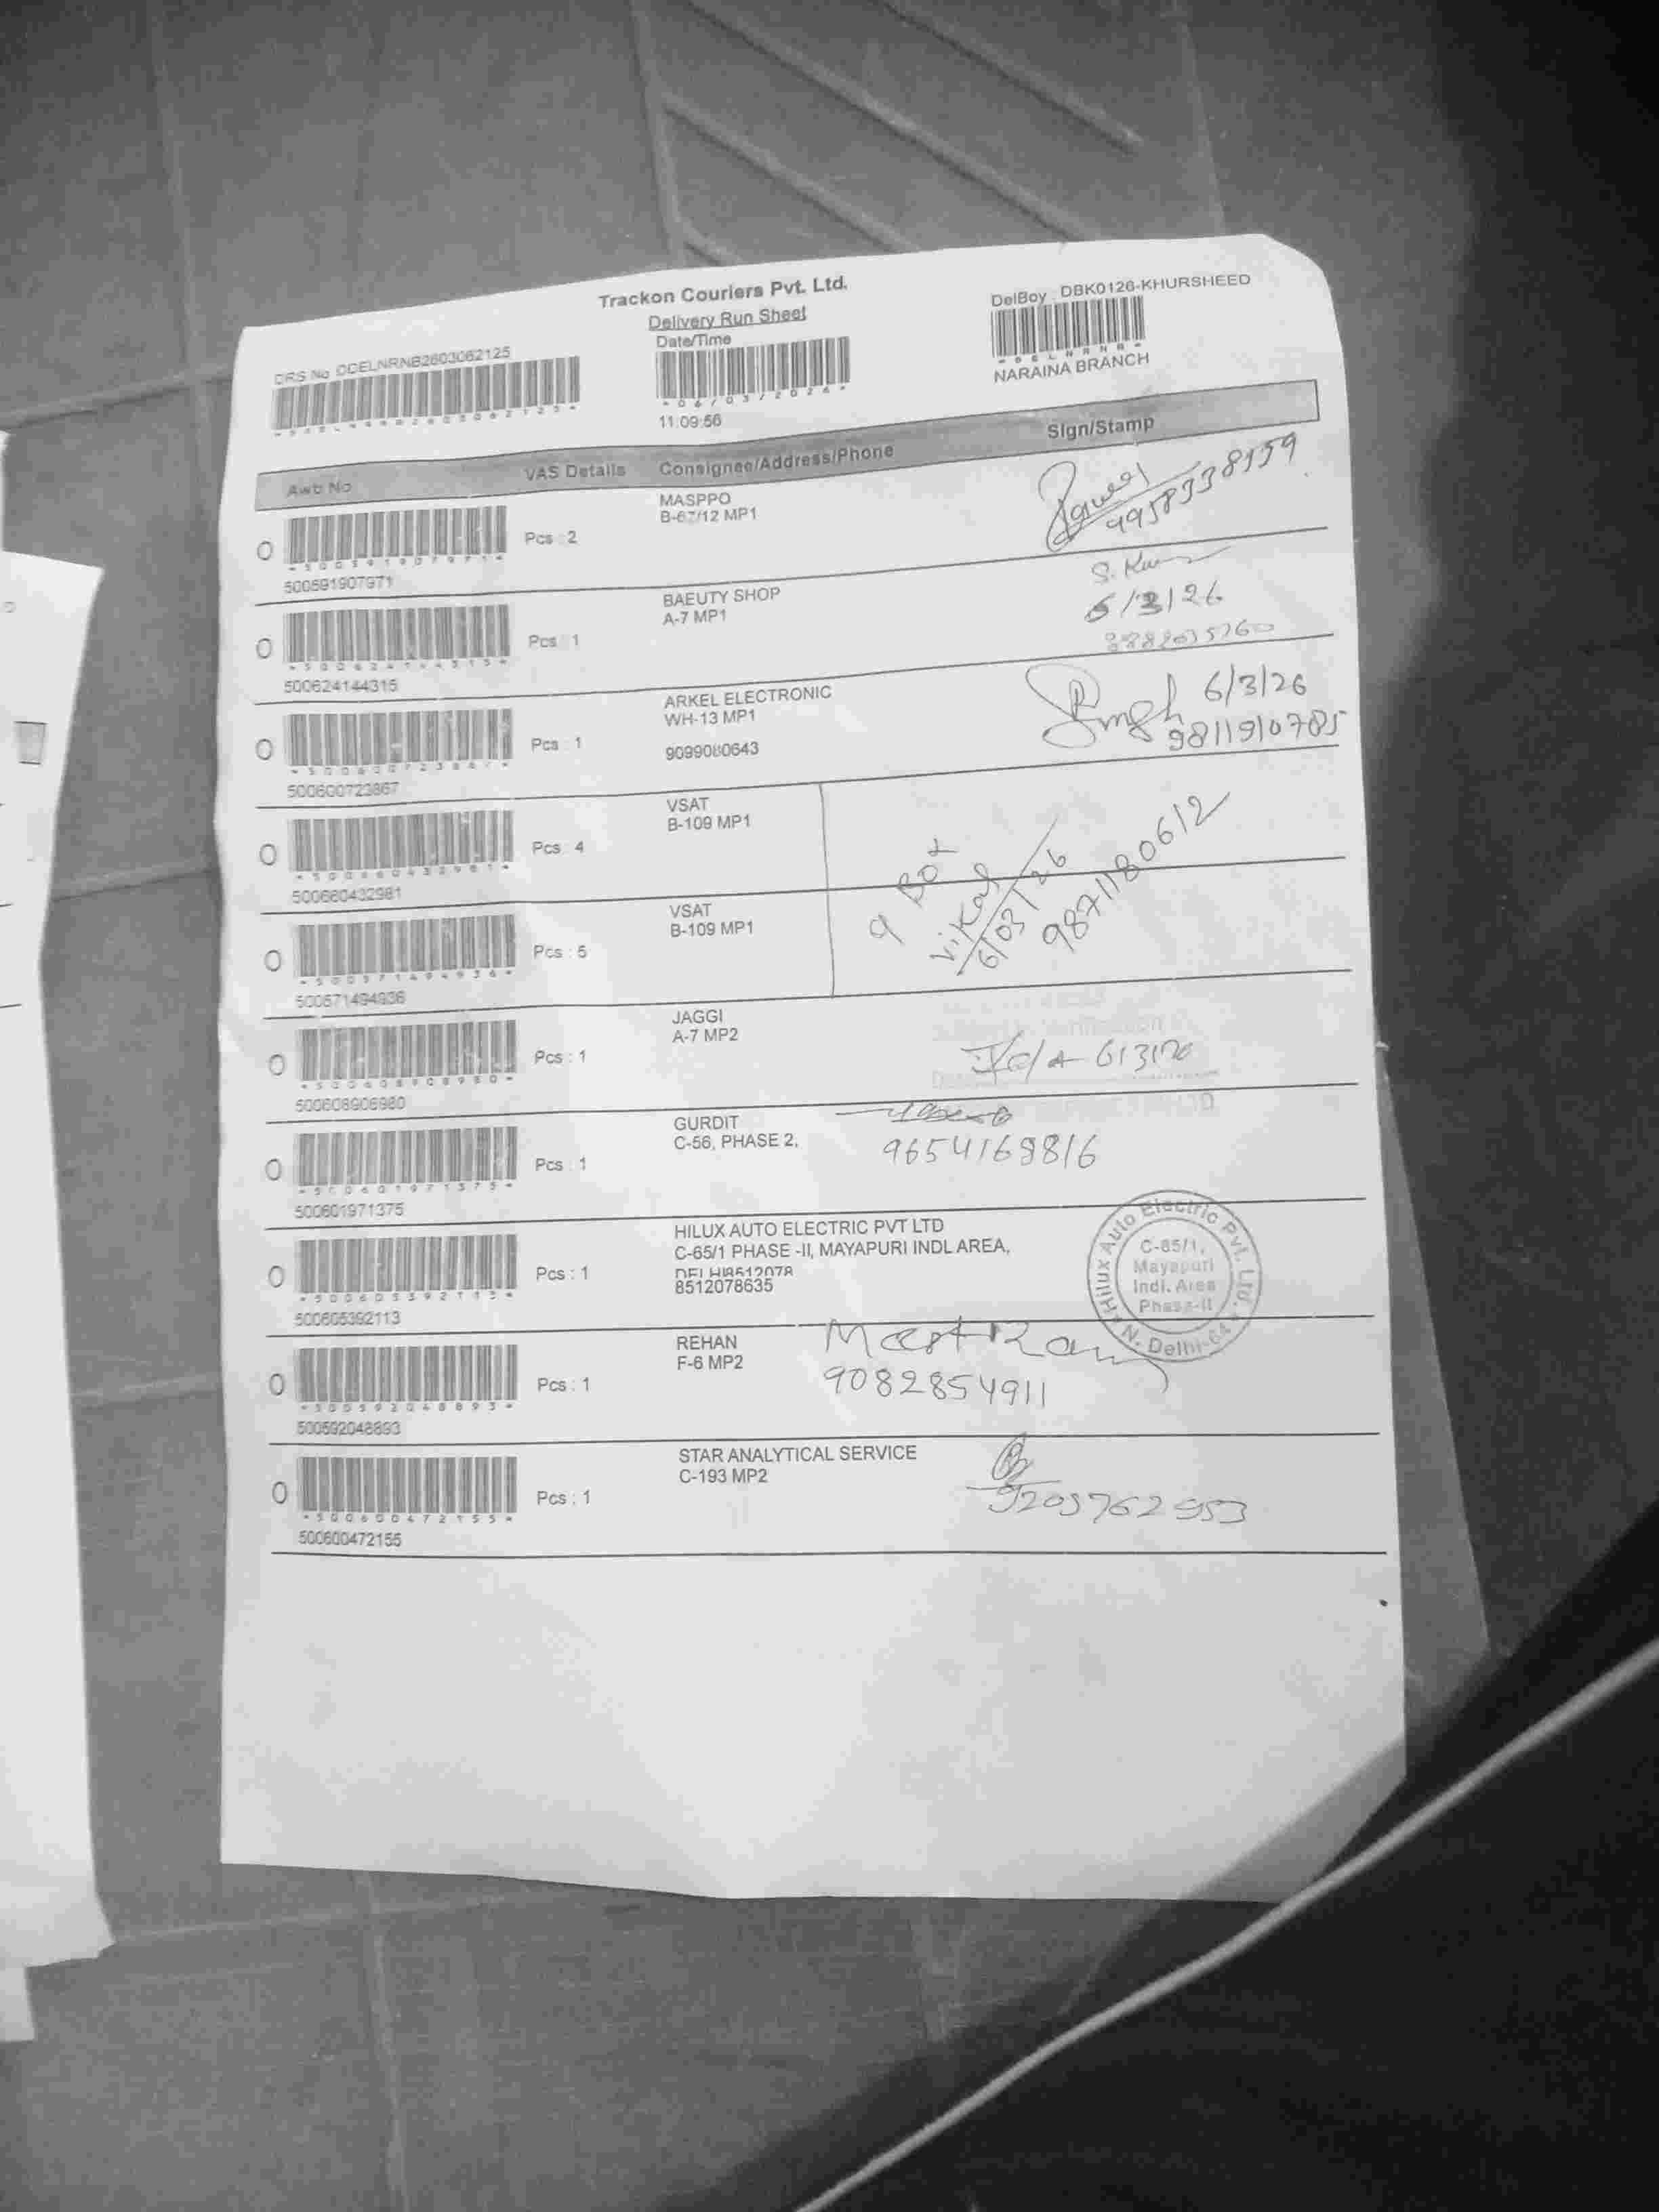 Trackon Couriers Pvt. Ltd.
Delivery Run Sheet
DRS No DDELNRNB2603062125
Date/Time
*06/03/2026*
11:09:56
DelBoy : DBK0126-KHURSHEED
*DELNRNB*
NARAINA BRANCH
Awb No VAS Details Consignee/Address/Phone Sign/Stamp
500591907971 Pcs : 2
MASPPO
B-67/12 MP1
9958338159
500624144315 Pcs : 1
BAEUTY SHOP
A-7 MP1
S. Kum
6/3/26
500600723867 Pcs : 1
ARKEL ELECTRONIC
WH-13 MP1
9099080643
Singh 6/3/26
9811910785
500660432981 Pcs : 4
VSAT
B-109 MP1
9 Box
Vikas
6/03/26
9871180612
500571494936 Pcs : 5
VSAT
B-109 MP1
500608906980 Pcs : 1
JAGGI
A-7 MP2
500601971375 Pcs : 1
GURDIT
C-56, PHASE 2,
9654169816
500605392113 Pcs : 1
HILUX AUTO ELECTRIC PVT LTD
C-65/1 PHASE -II, MAYAPURI INDL AREA,
DELHI8512078
8512078635
Hilux Auto Electric Pvt. Ltd.
C-65/1,
Mayapuri
Indl. Area
Phase-II
N. Delhi-64
500592048893 Pcs : 1
REHAN
F-6 MP2
Mast Ram
9082854911
500600472155 Pcs : 1
STAR ANALYTICAL SERVICE
C-193 MP2
9205762953